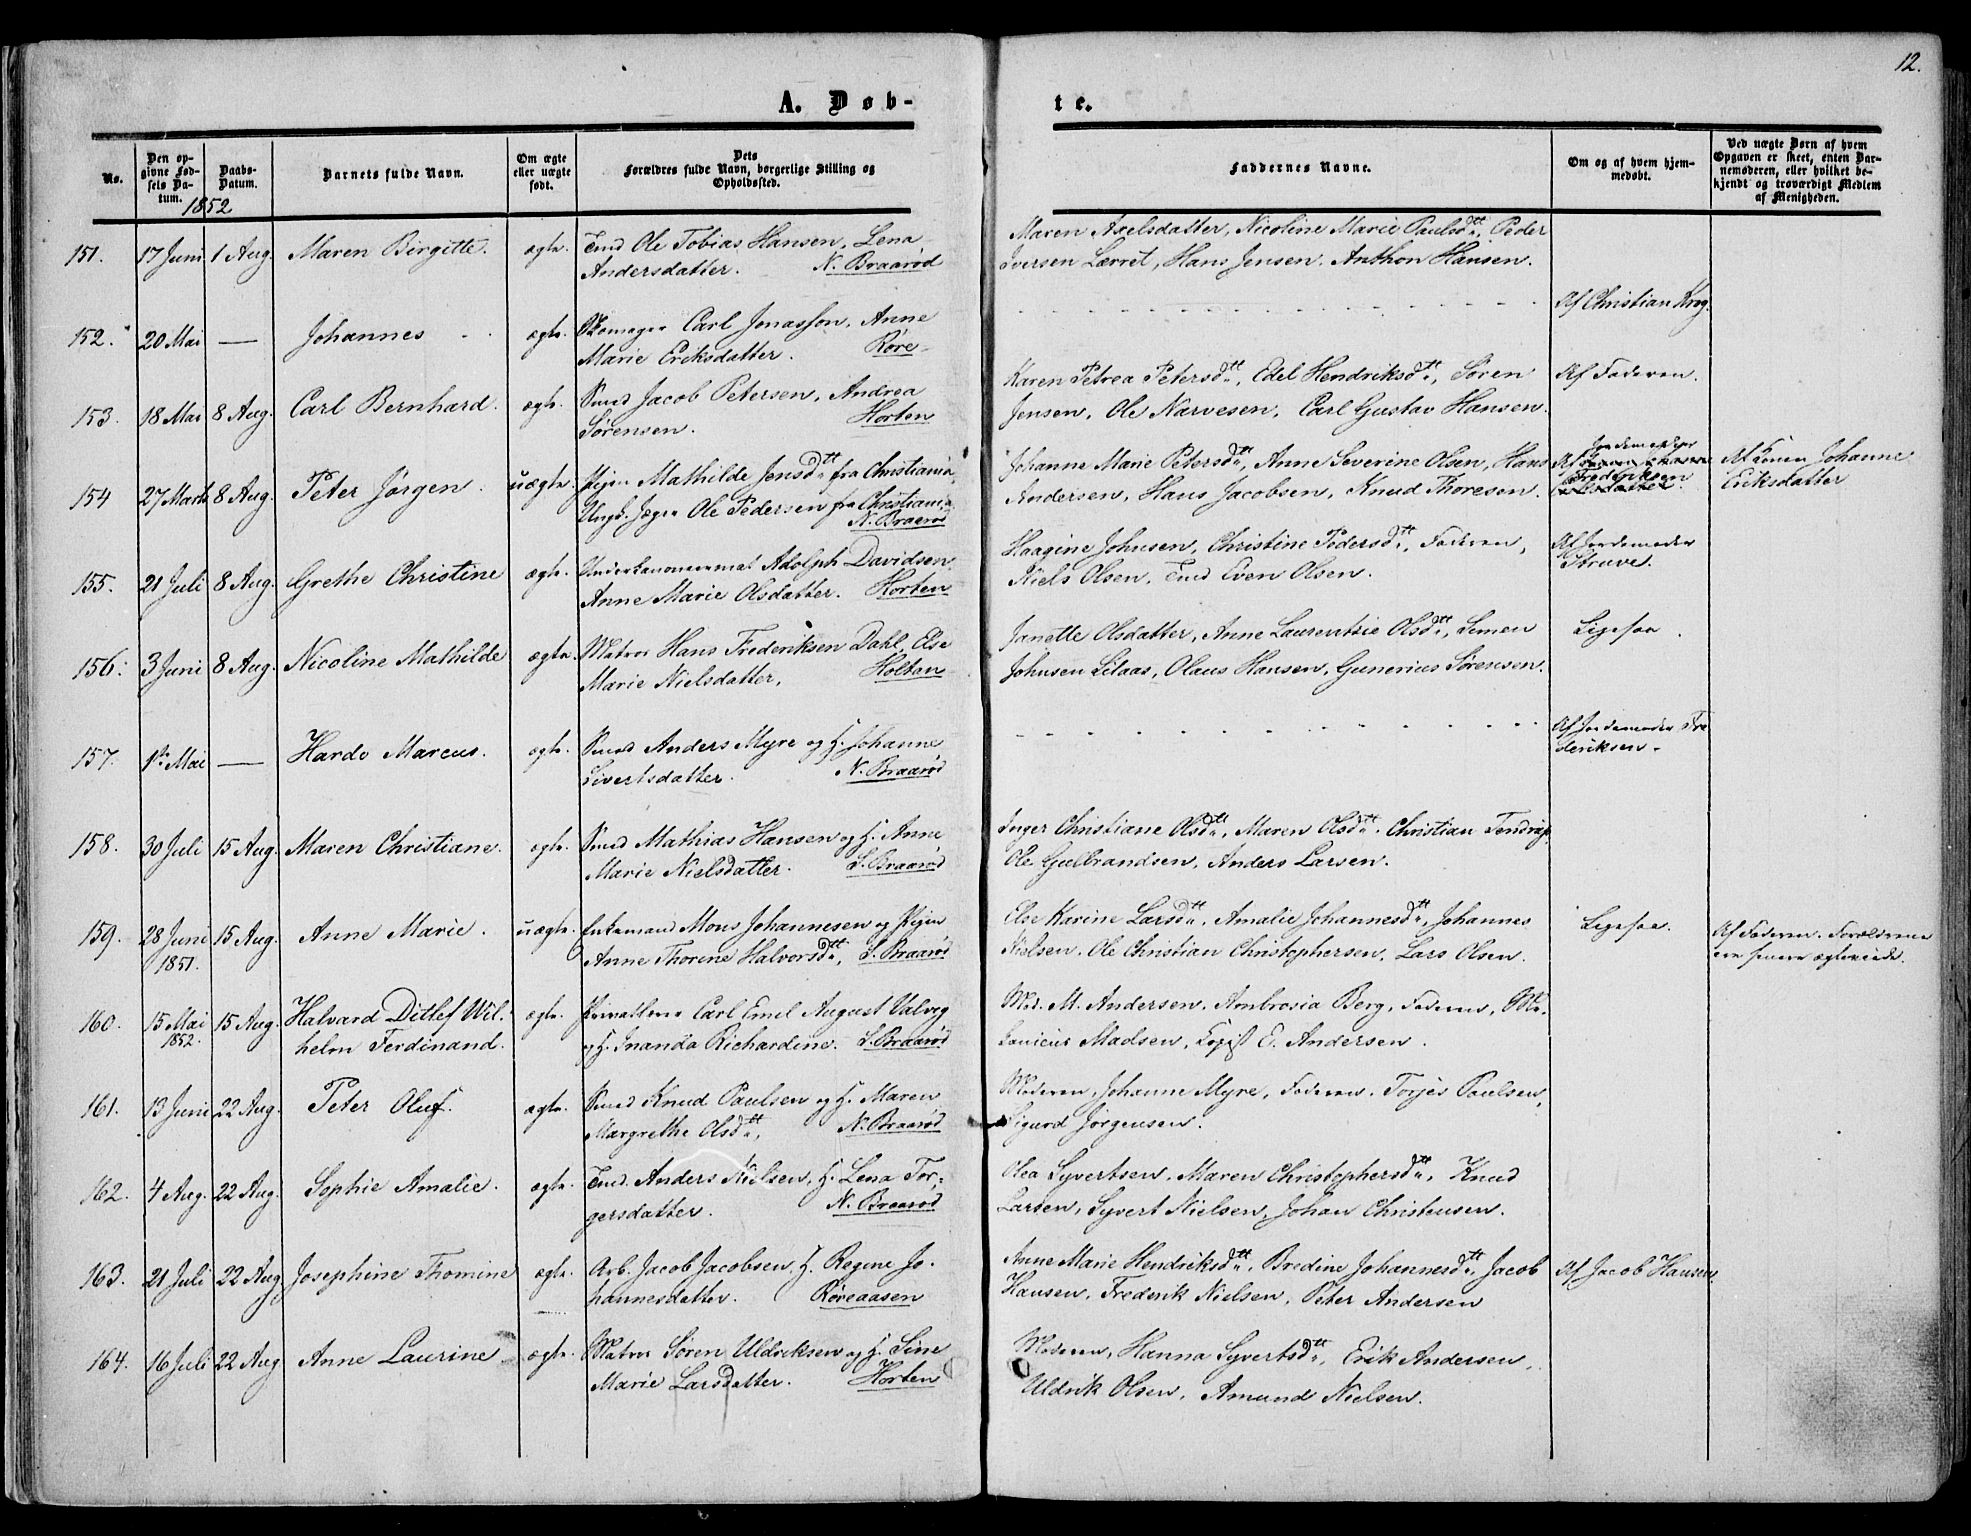 12.
A. Døb-
te.
No.
Den op-
givne Fød-
sels Da-
tum.
Daabs-
Datum.
Barnets fulde Navn.
Om ægte
eller uægte
født.
Dets
Forældres fulde Navn, borgerlige Stilling og
Opholdssted.
Faddernes Navne.
Om og af hvem hjem-
medøbt.
Ved uægte Børn af hvem
Opgaven er skeet, enten Bar-
nemoderen, eller hvilket be-
kjendt og troværdigt Medlem
af Menigheden.
1852
151. 17 Juni 1 Aug. Maren Birgitte. ægte. Tmd Ole Tobias Hansen, Lena
Andersdatter. N. Braarød
Maren Axelsdatter, Nicoline Marie Paulsdtt, Peder
Iversen Lærret, Hans Jensen. Anthon Hansen.
152. 20 Mai — Johannes ægte. Skomager Carl Jonasson, Anne
Marie Eriksdatter. Røre
Af Christian Krog.
153. 18 Mai 8 Aug. Carl Bernhard. ægte. Smed Jacob Petersen, Andrea
Sørensen. Horten
Karen Petrea Petersdtt, Edel Hendriksdtt, Søren
Jensen, Ole Narvesen, Carl Gustav Hansen.
Af Faderen.
154 27 Marts 8 Aug. Peter Jørgen. uægte. Pigen Mathilde Jensdtt fra Christiania,
Ungk. Jæger Ole Pedersen fra Christiania
N. Braarød
Johanne Marie Petersdtt, Anne Severine Olsen, Hans
Andersen, Hans Jacobsen, Knud Thoresen.
Af
Frederiksen
Af Konen Johanne
Eriksdatter
155. 21 Juli 8 Aug. Grethe Christine ægte. Underkanoneermat Adolph Davidsen,
Anne Marie Olsdatter. Horten
Haagine Johnsen, Christine Pedersdtt, Faderen,
Niels Olsen, Tmd Even Olsen.
Af Jordemoder
Struve.
156. 3 Juni 8 Aug. Nicoline Mathilde ægte. Matros Hans Frederiksen Dahl, Else
Marie Nielsdatter, Holtan
Janette Olsdatter, Anne Laurentzie Olsdtt, Semen
Johnsen Lilaas, Olaus Hansen, Gunerius Sørensen.
Ligesaa.
157. 1ste Mai — Hardo Marcus. ægte. Smed Anders Myre og H. Johanne
Sivertsdatter. N. Braarød
Af Jordemoder Fre
deriksen.
158. 30 Juli 15 Aug. Maren Christiane. ægte. Smed Mathias Hansen og H. Anne
Marie Nielsdatter. S. Braarød
Inger Christiane Olsdtt, Maren Olsdtt, Christian Tendrup,
Ole Gulbrandsen, Anders Larsen.
159. 28 Juni 15 Aug. Anne Marie. uægte. Enkemand Mons Johannesen og Pigen
1851. Anne Thorine Halvorsdtt, S. Braarød
Else Karine Larsdtt, Amalie Johannesdtt, Johannes
Nielsen, Ole Christian Christophersen, Lars Olsen.
Ligesaa.
Af Faderen. Forældrene
ere senere ægteviede.
160. 15 Mai 15 Aug. Halvard Ditlef Wil-
1852. helm Ferdinand. ægte. Carl Emil August Valvig
og H. Inanda Richardine. S. Braarød
Mad. M. Andersen, Ambrosia Berg, Faderen,
Madsen, Kopist E. Andersen.
161. 13 Juni 22 Aug. Peter Oluf. ægte. Smed Knud Paulsen og H. Maren
Margrethe Olsdtt, N. Braarød
Moderen, Johanne Myre, Faderen, Torjes Paulsen,
Sigurd Jörgensen.
162. 4 Aug. 22 Aug. Sophie Amalie. ægte. Tmd. Anders Nielsen, H. Lena Tor-
gersdatter. N. Braarød
Olea Syvertsen, Maren Christophersdtt, Knud
Larsen, Syvert Nielsen, Johan Christensen.
163. 21 Juli 22 Aug. Josephine Thomine ægte. Arb. Jacob Jacobsen, H. Regine Jo-
hannesdatter. Røreaasen
Anne Marie Hendriksdtt, Bredine Johannesdtt, Jacob
Hansen, Frederik Nielsen, Peter Andersen
Af Jacob Hansen
164. 16 Juli 22 Aug Anne Laurine ægte. Matros Søren Uldriksen og H. Sine
Marie Larsdatter. Horten
Moderen, Hanna Syvertsdtt, Erik Andersen,
Uldrik Olsen, Amund Nielsen.